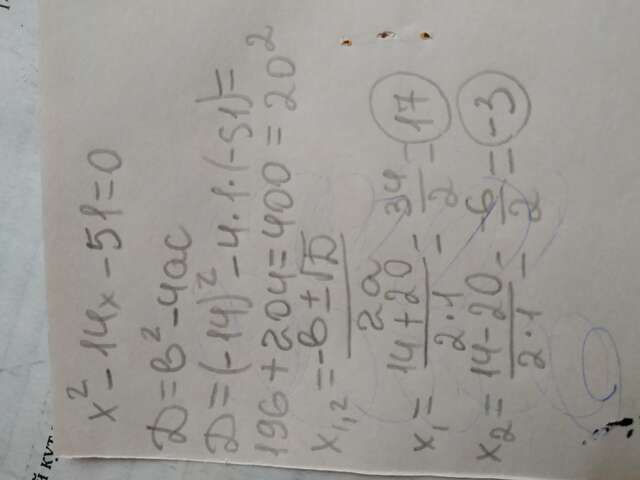 й кут
x² - 14x - 51 = 0
Д = в² - 4ac
Д = (-14)² - 4 · 1 · (-51) =
196 + 204 = 400 = 20²
x₁,₂ = -в ± √Д / 2a
x₁ = 14 + 20 / 2 · 1 = 34 / 2 = 17
x₂ = 14 - 20 / 2 · 1 = -6 / 2 = -3